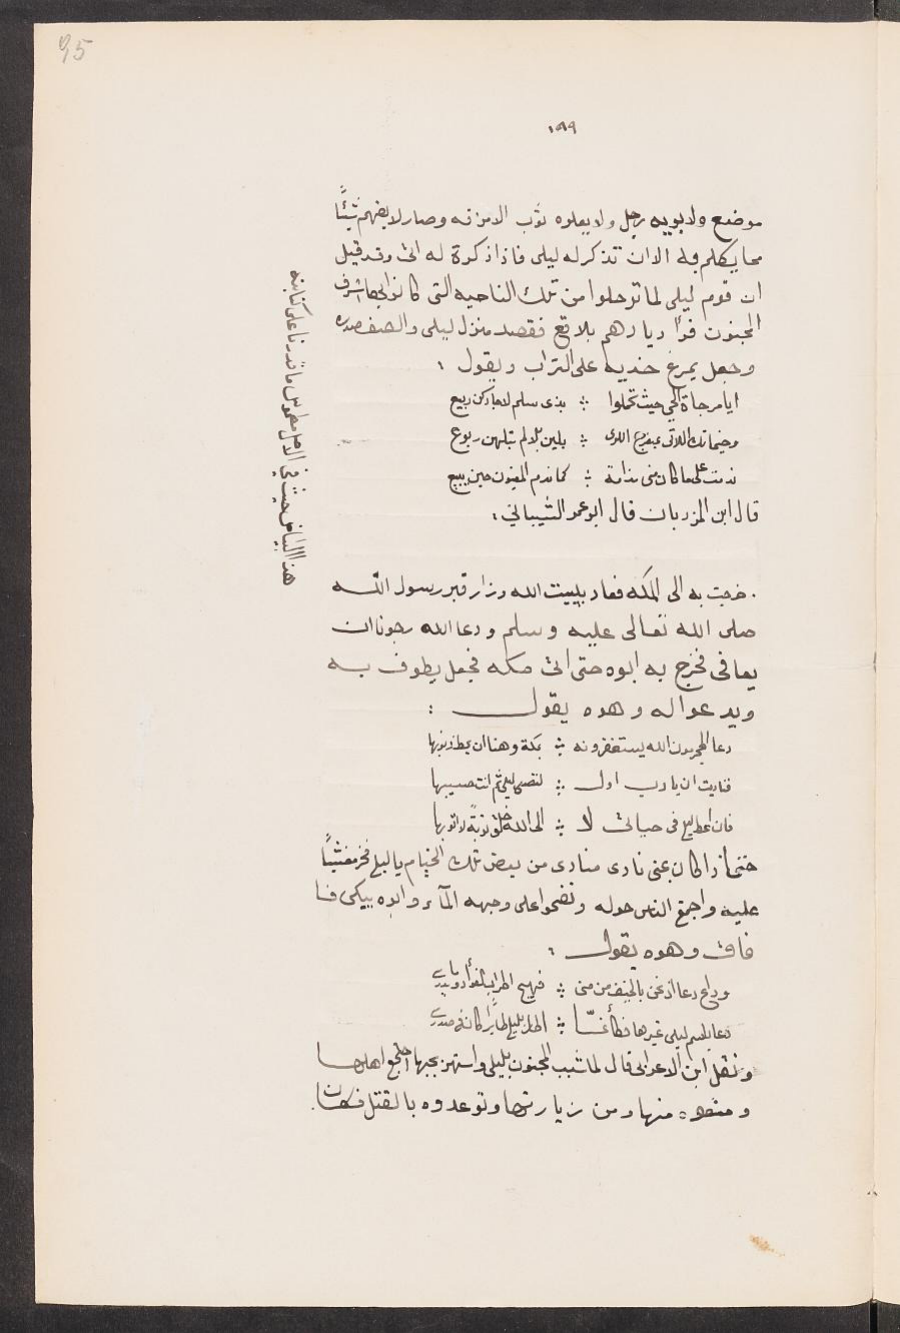 95
١٨٩
موضع ولا يويه رجل ولا يعلوه ثوب الا مزقه وصار لا يفهم شيئًا
مما يكلم به الا ان تذكر له ليلى فاذا ذكرة له اتى وقد قيل
ان قوم ليلى لما ترحلوا من تلك الناحيه التى كانوا بها اشرف
المجنون فرأ ديارهم بلاقع فقصد منزل ليلى والصق صدره
وجعل يمرغ خديه على التراب ويقول :
ايا مرجاة الحي حيث تحملوا ؞ بذى سلم لا جادكن ربيع
وخيماتك اللاتى بمنعرج اللوى ؞ بلين بلا لم تبلهن ربوع
ندمت على ما كان منى ندامة ؞ كما ندم المغبون حين يبيع
قال ابن المزربان قال ابو عمر الشيباني :
هذا البياض حيث في الاصل مطموس ما قدرنا على كتابته
خرجت به الى المكه فعاد ببيت الله وزار قبر رسول الله
صلى الله تعالى عليه وسلم ودعا الله رجونا ان
يعافى فخرج به ابوه حتى اتى مكه فجعل يطوف به
ويدعوا له وهوه يقول :
دعا المجرمون الله يستغفرونه ؞ بمكة وهنا ان يحط ذنوبها
فناديت ان يا رب اول ؞ لنفسى ليلى ثم انت حسيبها
فان اعط ليلى في حياتى لا ؞ الى الله خلق توبة لا اتوبها
حتى اذا كان بمنى نادى منادى من بعض تلك الخيام يا ليلى فخر مغشيًا
عليه واجمع الناس حوله ونضحوا على وجهه المآء وابوه يبكى فا
فاق وهوه يقول :
وداع دعا اذ نحن بالخيف من منى ؞ فهيج اطراب الفؤاد وما يدرى
دعا باسم ليلى غيرها فكأنمّا ؞ اطار بليلى طايرًا كان في صدرى
ونقل ابن الاعرابى قال لما شبب المجنون بليلى واستهر بحبها اجتمع اهلها
ومنعوه منها ومن زيارتها وتوعدوه بالقتل فكان